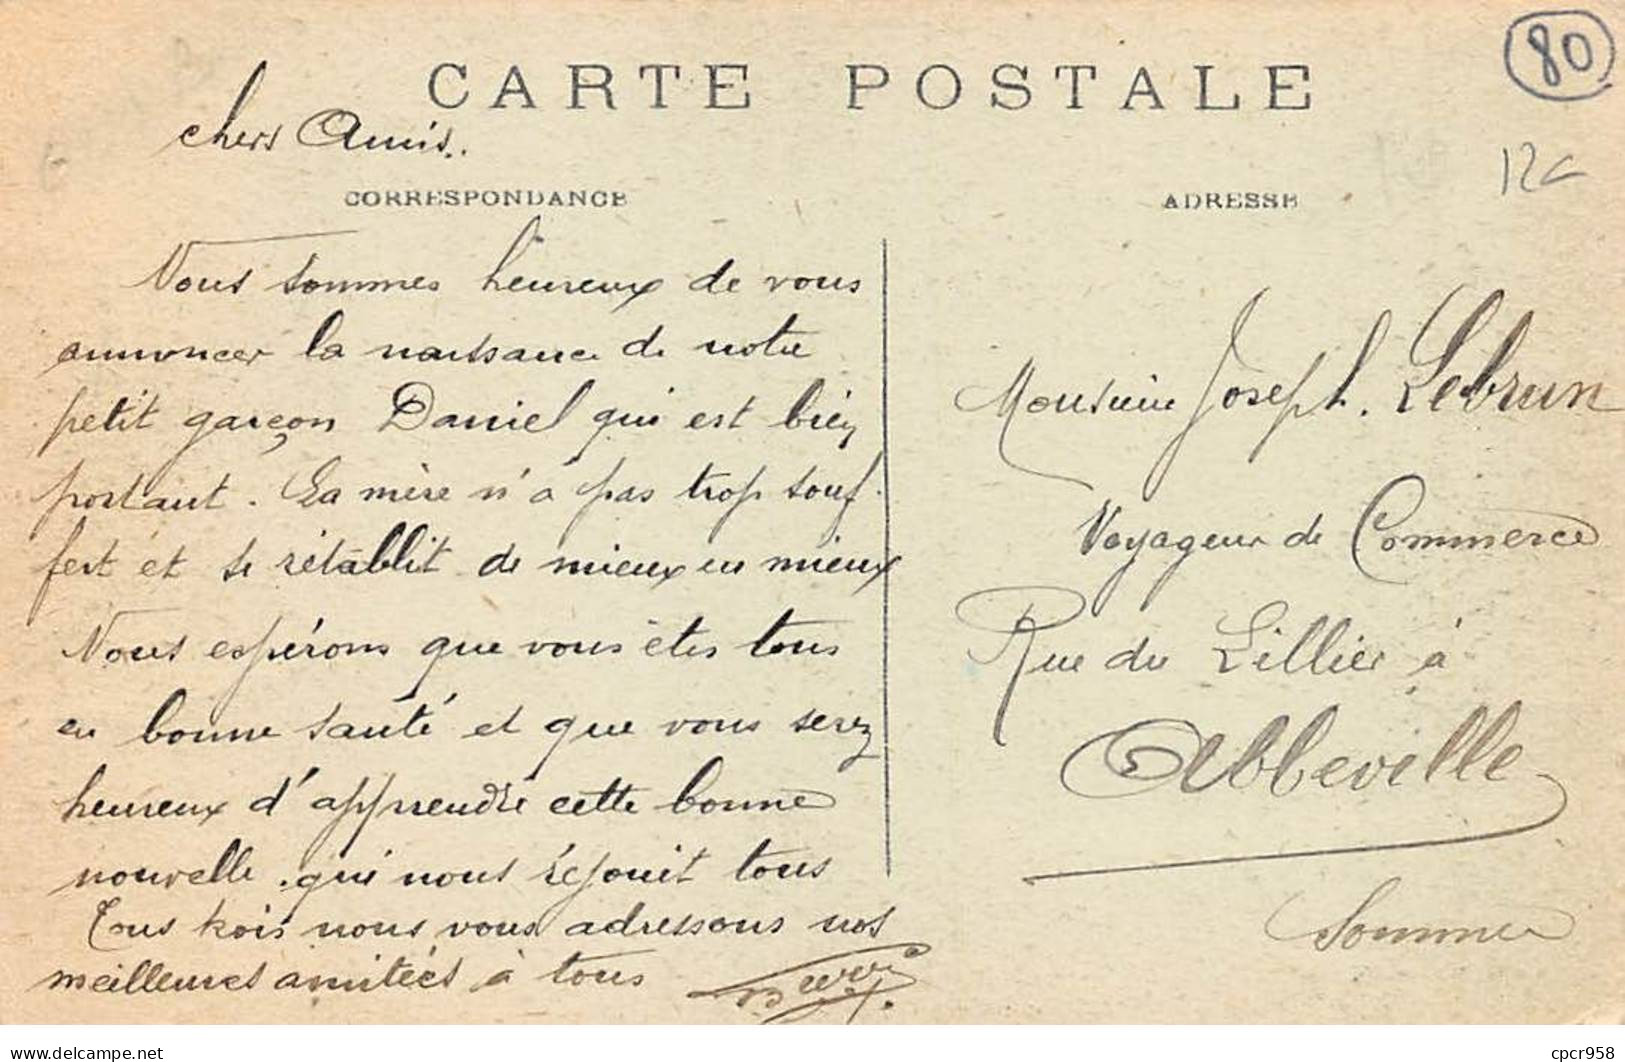 CARTE POSTALE
80
12€
chers Amis.
CORRESPONDANCE
Nous sommes heureux de vous
annoncer la naissance de notre
petit garçon Daniel qui est bien
portant. La mère n'a pas trop souf-
fert et se rétablit de mieux en mieux
Nous espérons que vous êtes tous
en bonne santé et que vous serez
heureux d'apprendre cette bonne
nouvelle. qui nous réjouit tous
Tous trois nous vous adressons nos
meilleures amitiés à tous
ADRESSE
Monsieur Joseph. Lebrun
Voyageur de Commerce
Rue du Lillier à
Abbeville
Somme
delcampe.net
cpcr958